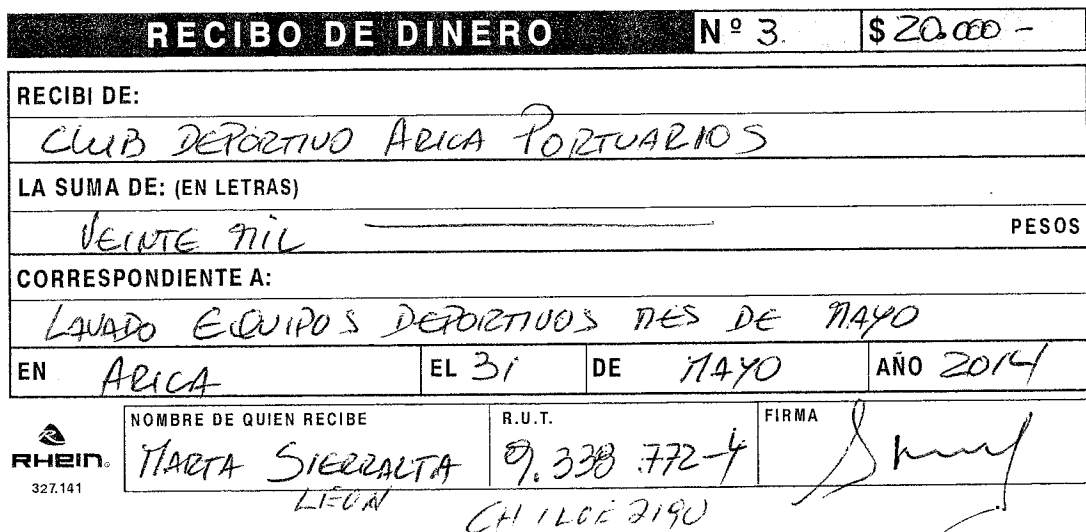 RECIBO DE DINERO Nº 3. $ 20.000 -
RECIBI DE:
CLUB DEPORTIVO ARICA PORTUARIOS
LA SUMA DE: (EN LETRAS)
VEINTE MIL PESOS
CORRESPONDIENTE A:
LAVADO EQUIPOS DEPORTIVOS MES DE MAYO
EN ARICA EL 31 DE MAYO AÑO 2014
NOMBRE DE QUIEN RECIBE R.U.T. FIRMA
RHEIN. MARTA SIERRALTA 9.338.772-4
327.141 LEON CHILOE 2190